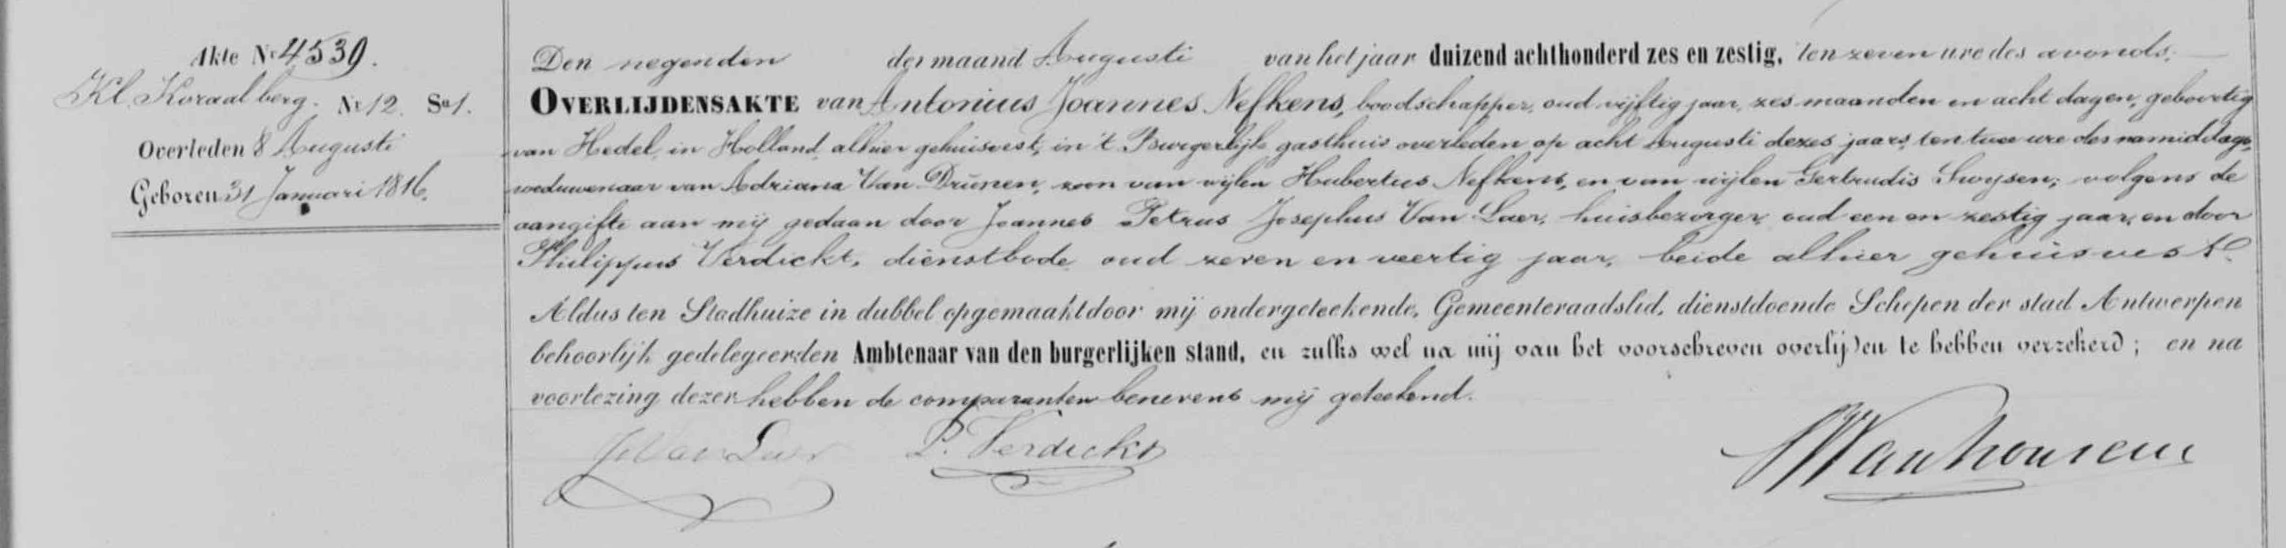 Akte Nr 4539.
Kl. Koraalberg. Nr 12. Sn 1.
Overleden 8 Augusti
Geboren 31 Januari 1816.
Den negenden der maand Augusti van het jaar duizend achthonderd zes en zestig, ten zeven ure des avonds.
OVERLIJDENSAKTE van Antonius Joannes Nefkens, boodschapper, oud vijftig jaar, zes maanden en acht dagen, geboortig
van Hedel, in Holland, alhier gehuisvest, in 't Burgerlijk gasthuis overleden op acht Augusti dezes jaars, ten twee ure des namiddags,
weduwenaar van Adriana Van Drunen, zoon van wijlen Hubertus Nefkens, en van wijlen Gertrudis Swijsen; volgens de
aangifte aan mij gedaan door Joannes Petrus Josephus Van Laer, huisbezorger, oud een en zestig jaar, en door
Philippus Verdickt, dienstbode oud zeven en veertig jaar, beide alhier gehuisvest.
Aldus ten Stadhuize in dubbel opgemaakt door mij ondergeteekende, Gemeenteraadslid, dienstdoende Schepen der stad Antwerpen
behoorlijk gedelegeerden Ambtenaar van den burgerlijken stand, en zulks wel na mij van het voorschreven overlijden te hebben verzekerd; en na
voorlezing dezer hebben de comparanten benevens mij geteekend.
Van Laer P. Verdickt